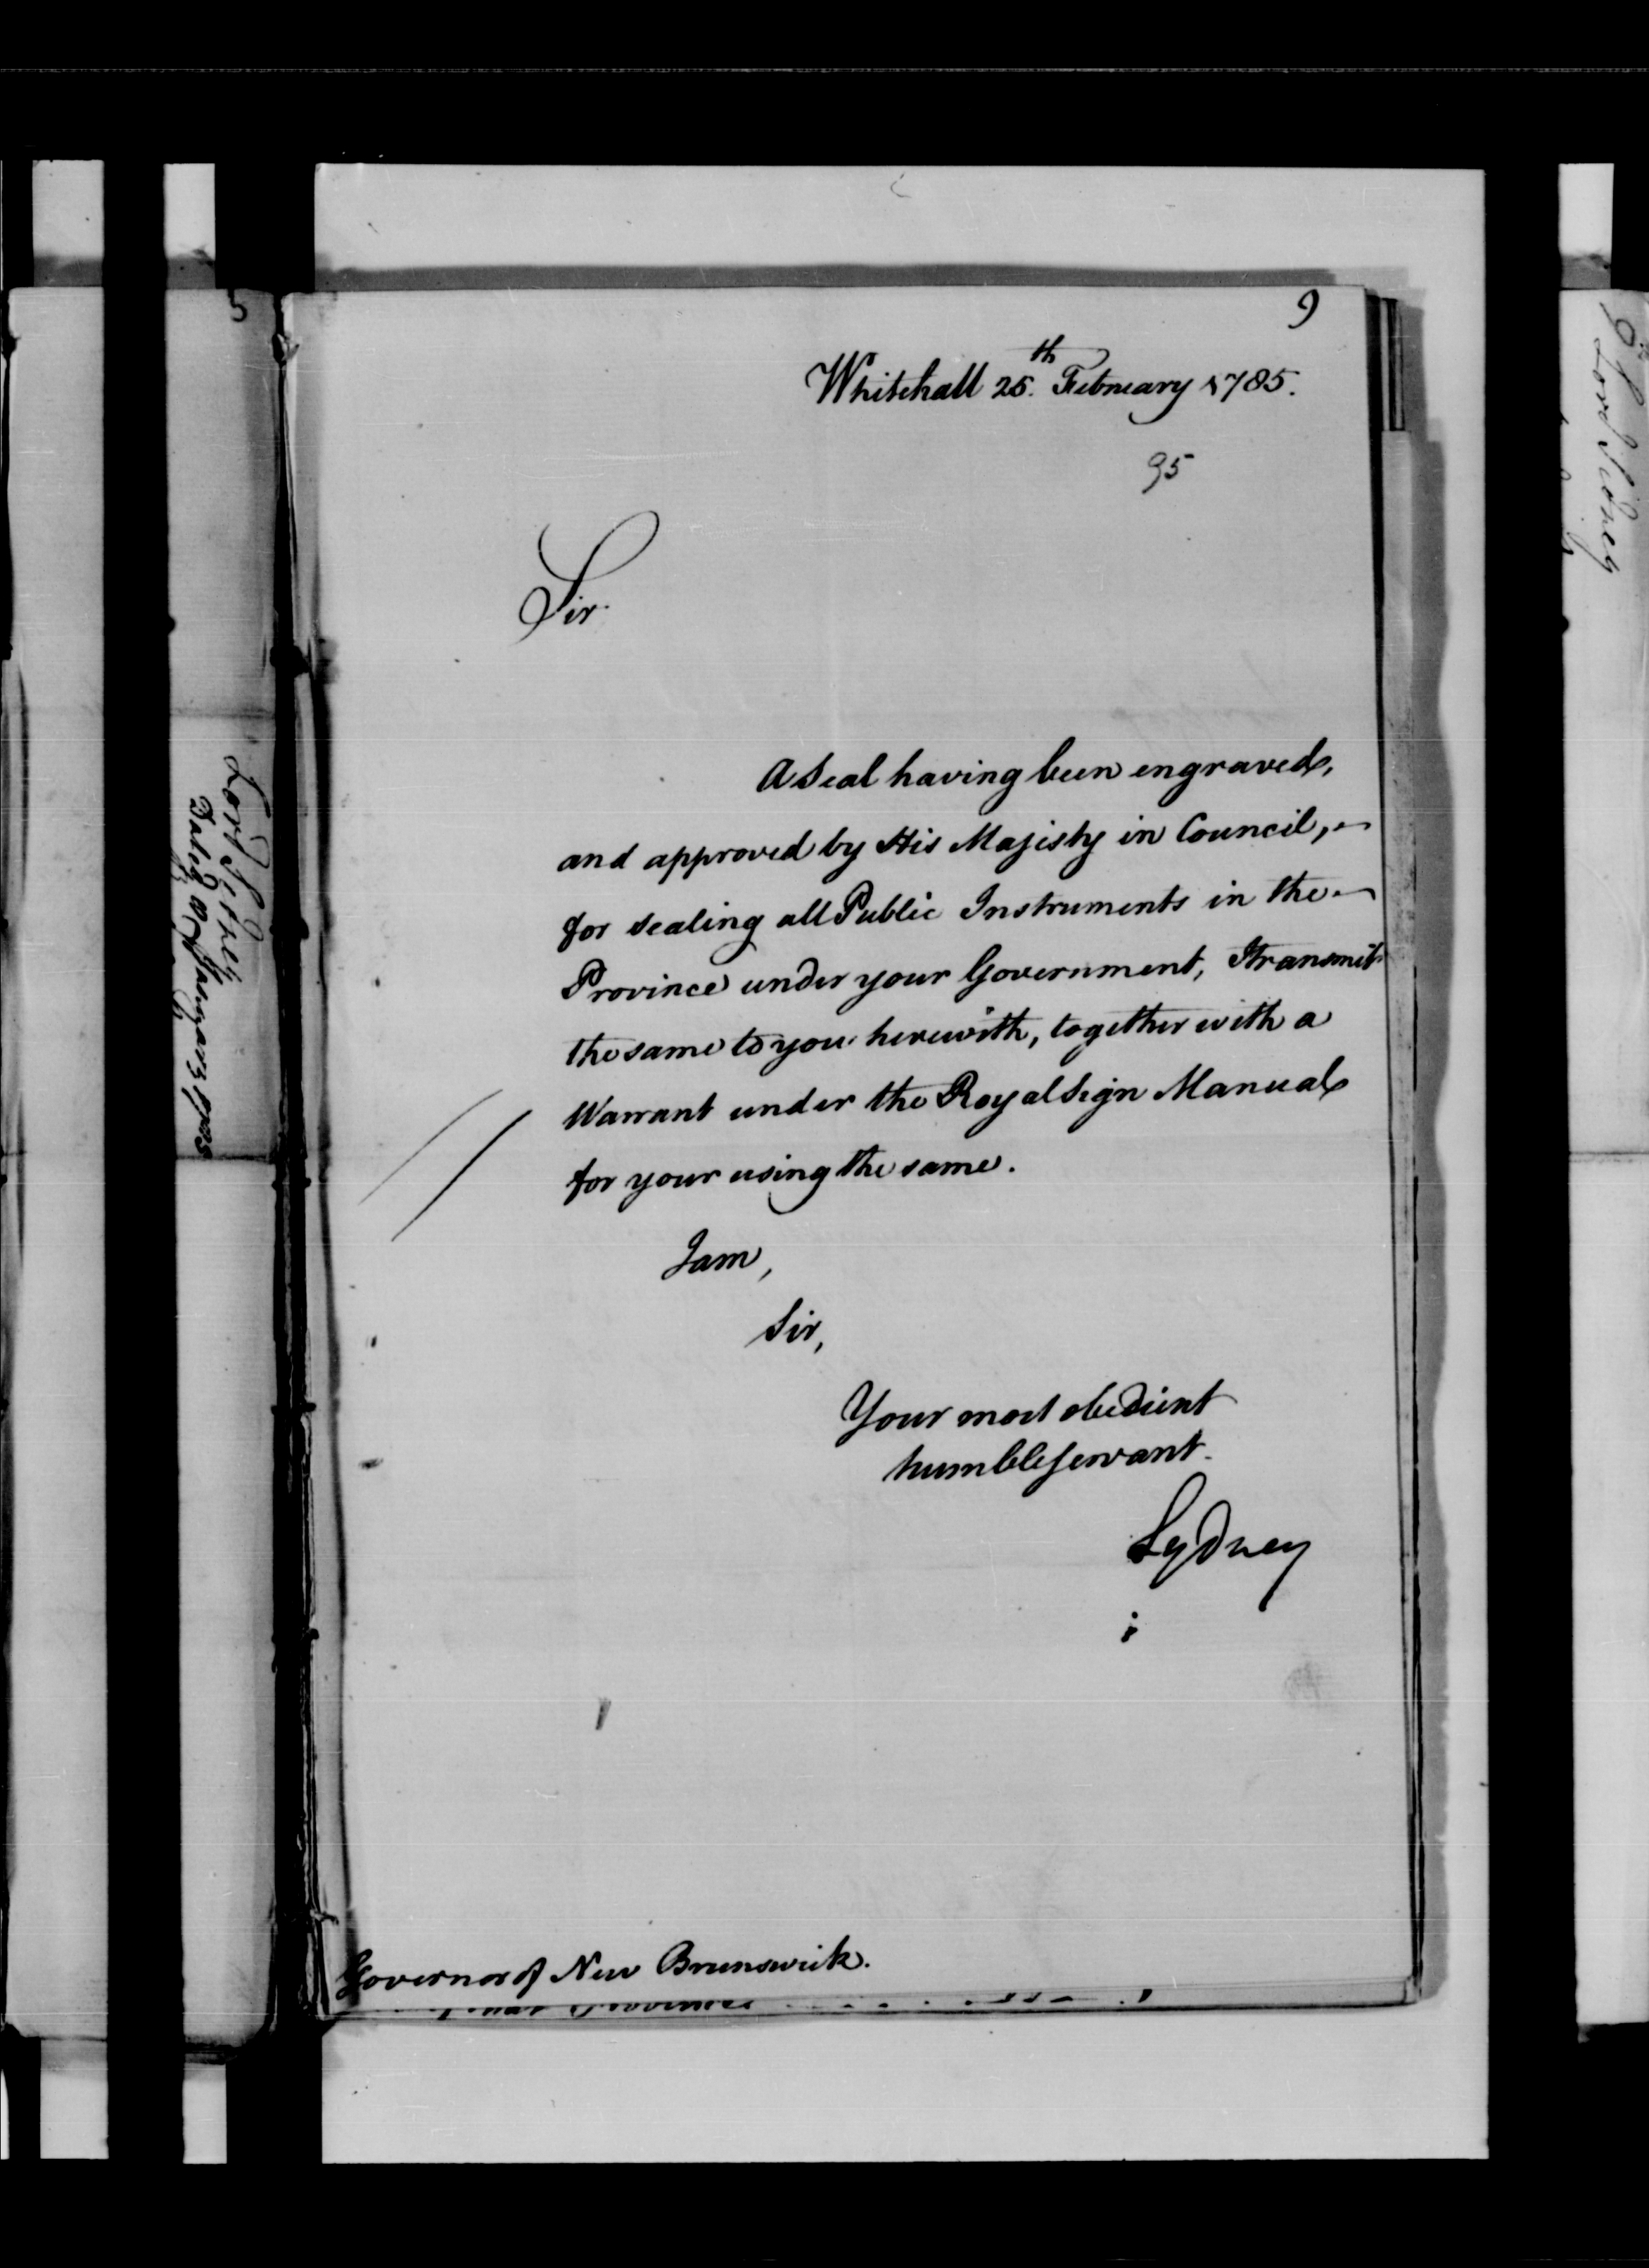 9
Whitehall 25.th February 1785.
95
Sir
A Seal having been engraved,
and approved by His Majesty in Council,
for sealing all Public Instruments in the
Province under your Government, I transmit
the same to you herewith, together with a
Warrant under the Royal Sign Manual
for your using the same.
I am,
Sir,
Your most obedient
humble servant.
Sydney
Governor of New Brunswick.
5
Lord Sydney
Lord Sidney